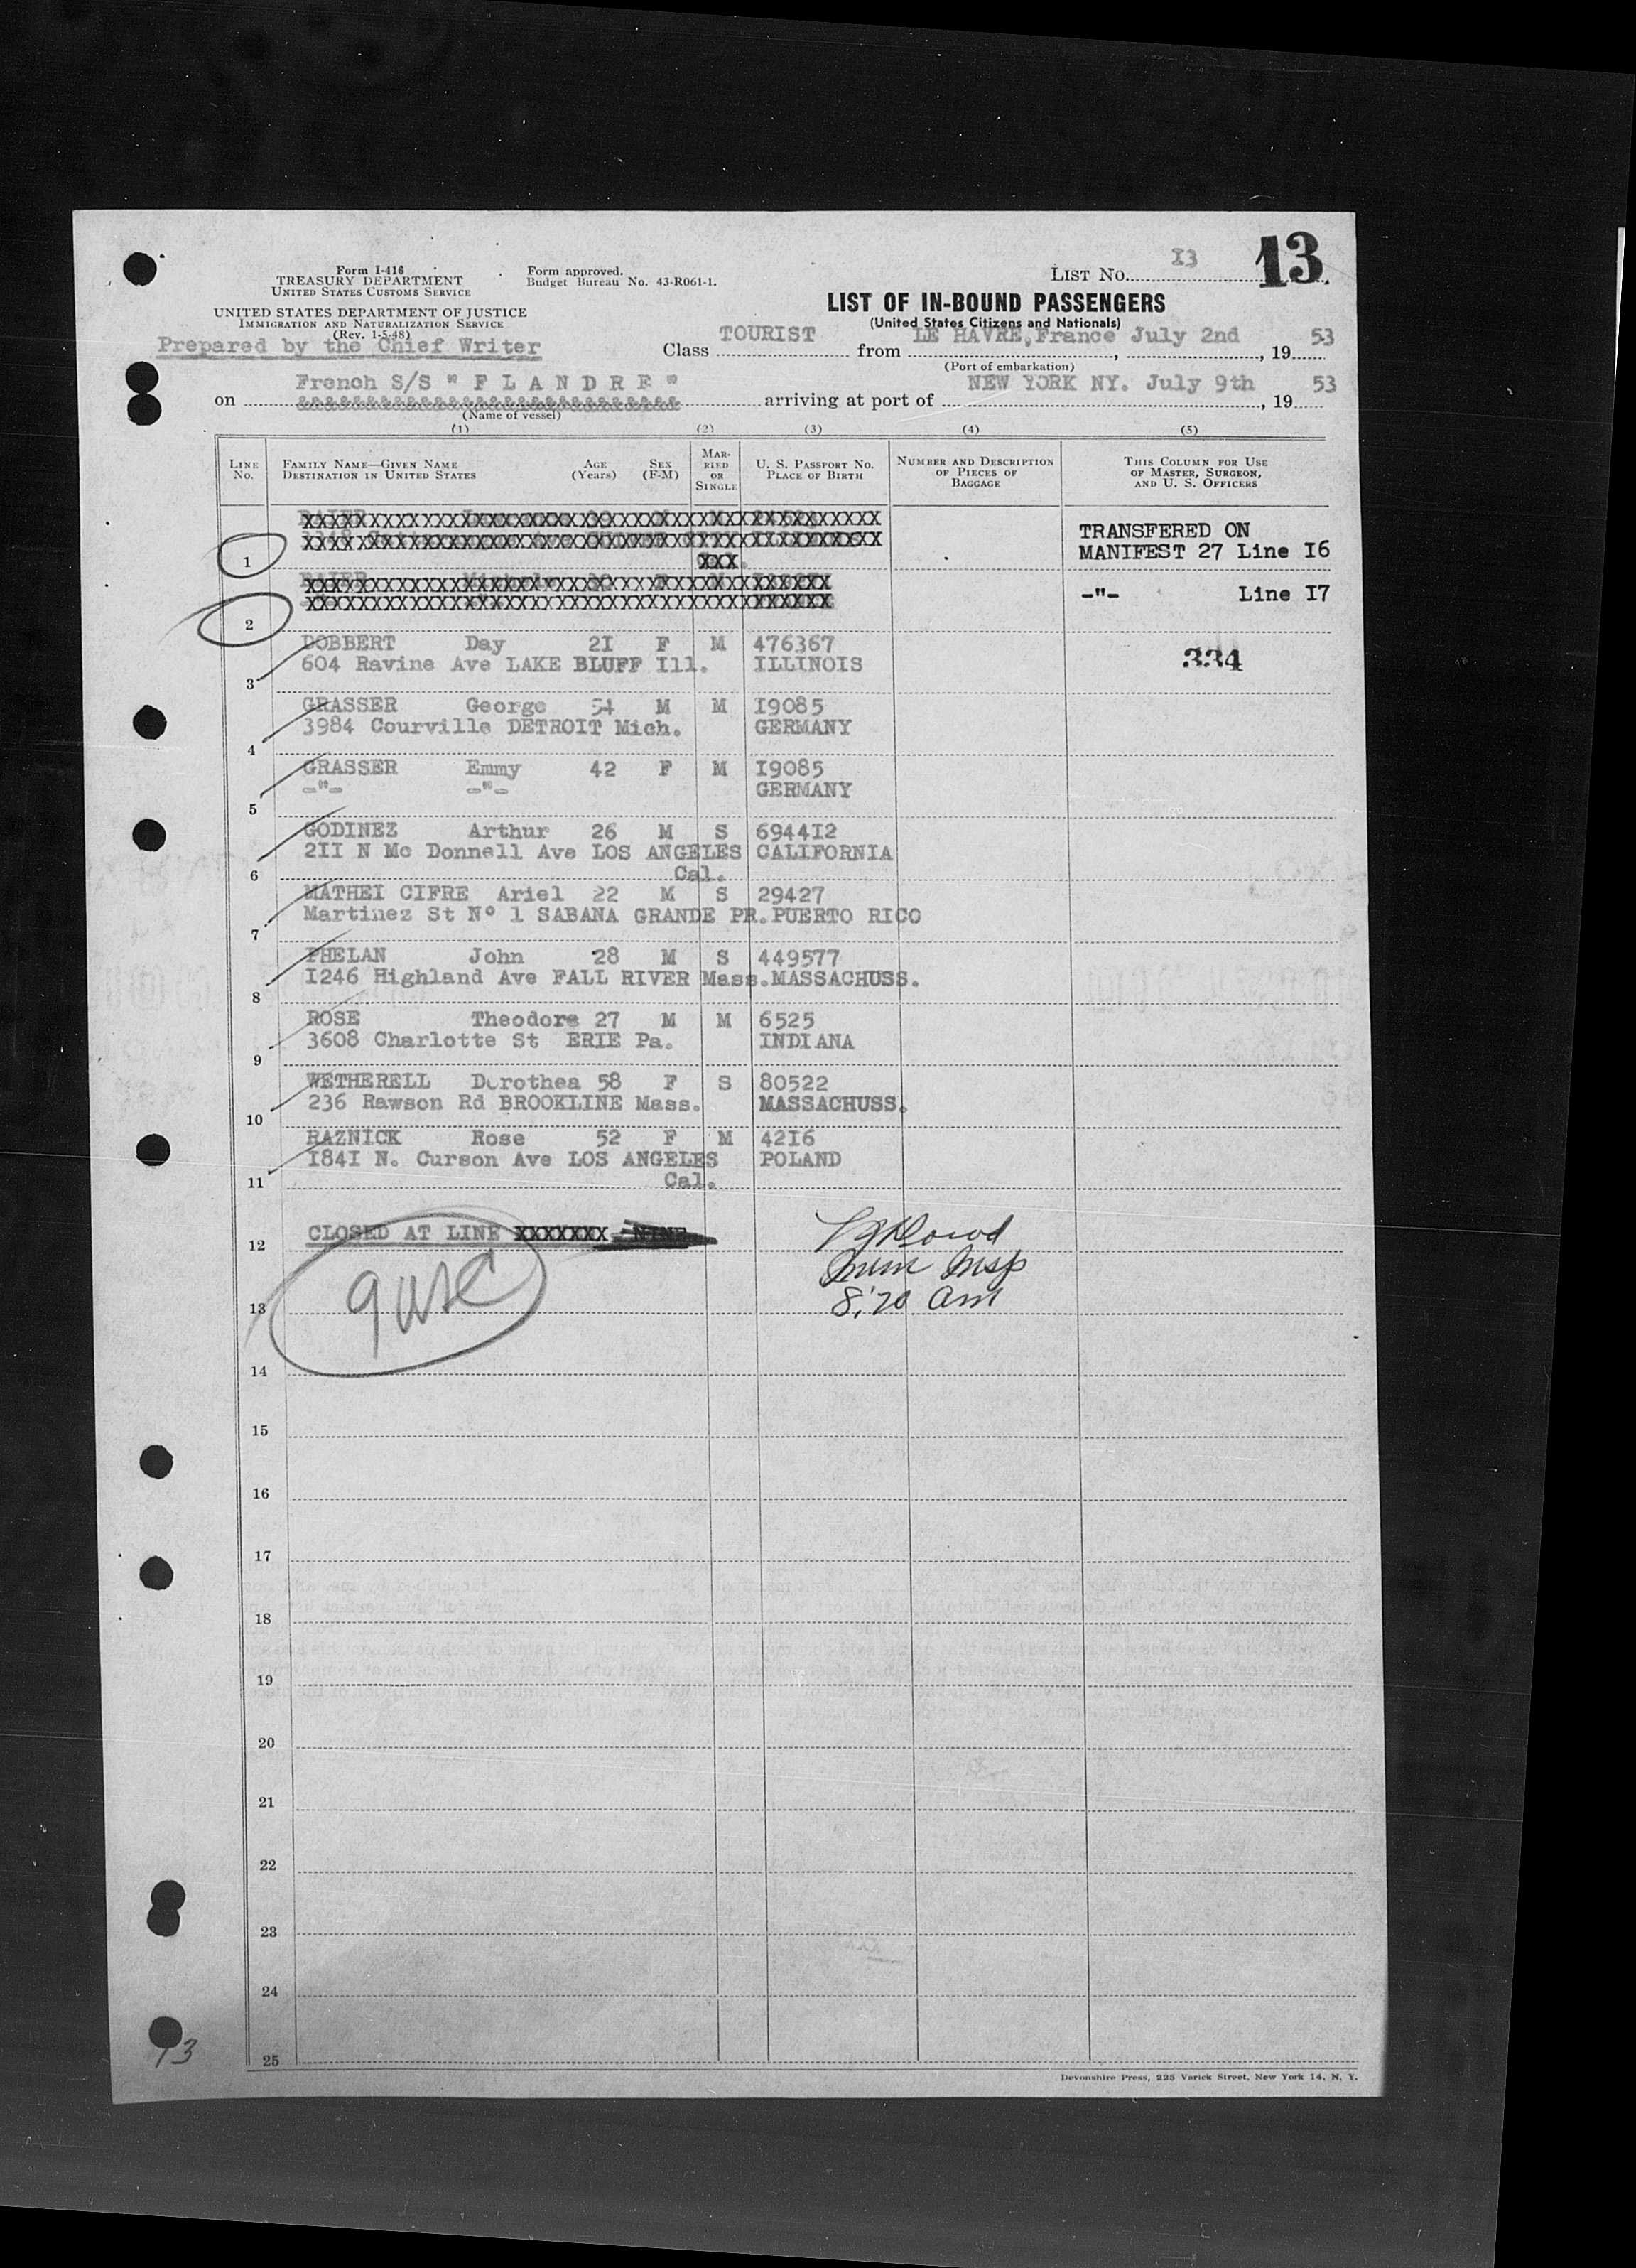 13
LIST No. I3
Form I-416
TREASURY DEPARTMENT
UNITED STATES CUSTOMS SERVICE
Form approved.
Budget Bureau No. 43-R061-1.
UNITED STATES DEPARTMENT OF JUSTICE
IMMIGRATION AND NATURALIZATION SERVICE
(Rev. 1-5-48)
Prepared by the Chief Writer
LIST OF IN-BOUND PASSENGERS
(United States Citizens and Nationals)
Class TOURIST from LE HAVRE,France July 2nd, 19 53
(Port of embarkation)
on French S/S " F L A N D R E " arriving at port of NEW YORK NY. July 9th, 19 53
(Name of vessel)
(1) (2) (3) (4) (5)
LINE No. FAMILY NAME—GIVEN NAME DESTINATION IN UNITED STATES AGE (Years) SEX (F-M) MARRIED OR SINGLE U. S. PASSPORT No. PLACE OF BIRTH NUMBER AND DESCRIPTION OF PIECES OF BAGGAGE THIS COLUMN FOR USE OF MASTER, SURGEON, AND U. S. OFFICERS
TRANSFERED ON
1 XXX MANIFEST 27 Line I6
-"- Line I7
2
DOBBERT Day 2I F M 476367
604 Ravine Ave LAKE BLUFF Ill. ILLINOIS 334
3
GRASSER George 54 M M I9085
3984 Courville DETROIT Mich. GERMANY
4
GRASSER Emmy 42 F M I9085
-"- -"- GERMANY
5
GODINEZ Arthur 26 M S 6944I2
2II N Mc Donnell Ave LOS ANGELES CALIFORNIA
6 Cal.
MATHEI CIFRE Ariel 22 M S 29427
Martinez St N° 1 SABANA GRANDE PR. PUERTO RICO
7
PHELAN John 28 M S 449577
I246 Highland Ave FALL RIVER Mass. MASSACHUSS.
8
ROSE Theodore 27 M M 6525
3608 Charlotte St ERIE Pa. INDIANA
9
WETHERELL Dorothea 58 F S 80522
236 Rawson Rd BROOKLINE Mass. MASSACHUSS.
10
RAZNICK Rose 52 F M 42I6
I84I N. Curson Ave LOS ANGELES POLAND
11 Cal.
12 CLOSED AT LINE XXXXXXX NINE
9 USC
Imm Insp
8:20 am
13
14
15
16
17
18
19
20
21
22
23
24
25
13
Devonshire Press, 225 Varick Street, New York 14, N. Y.